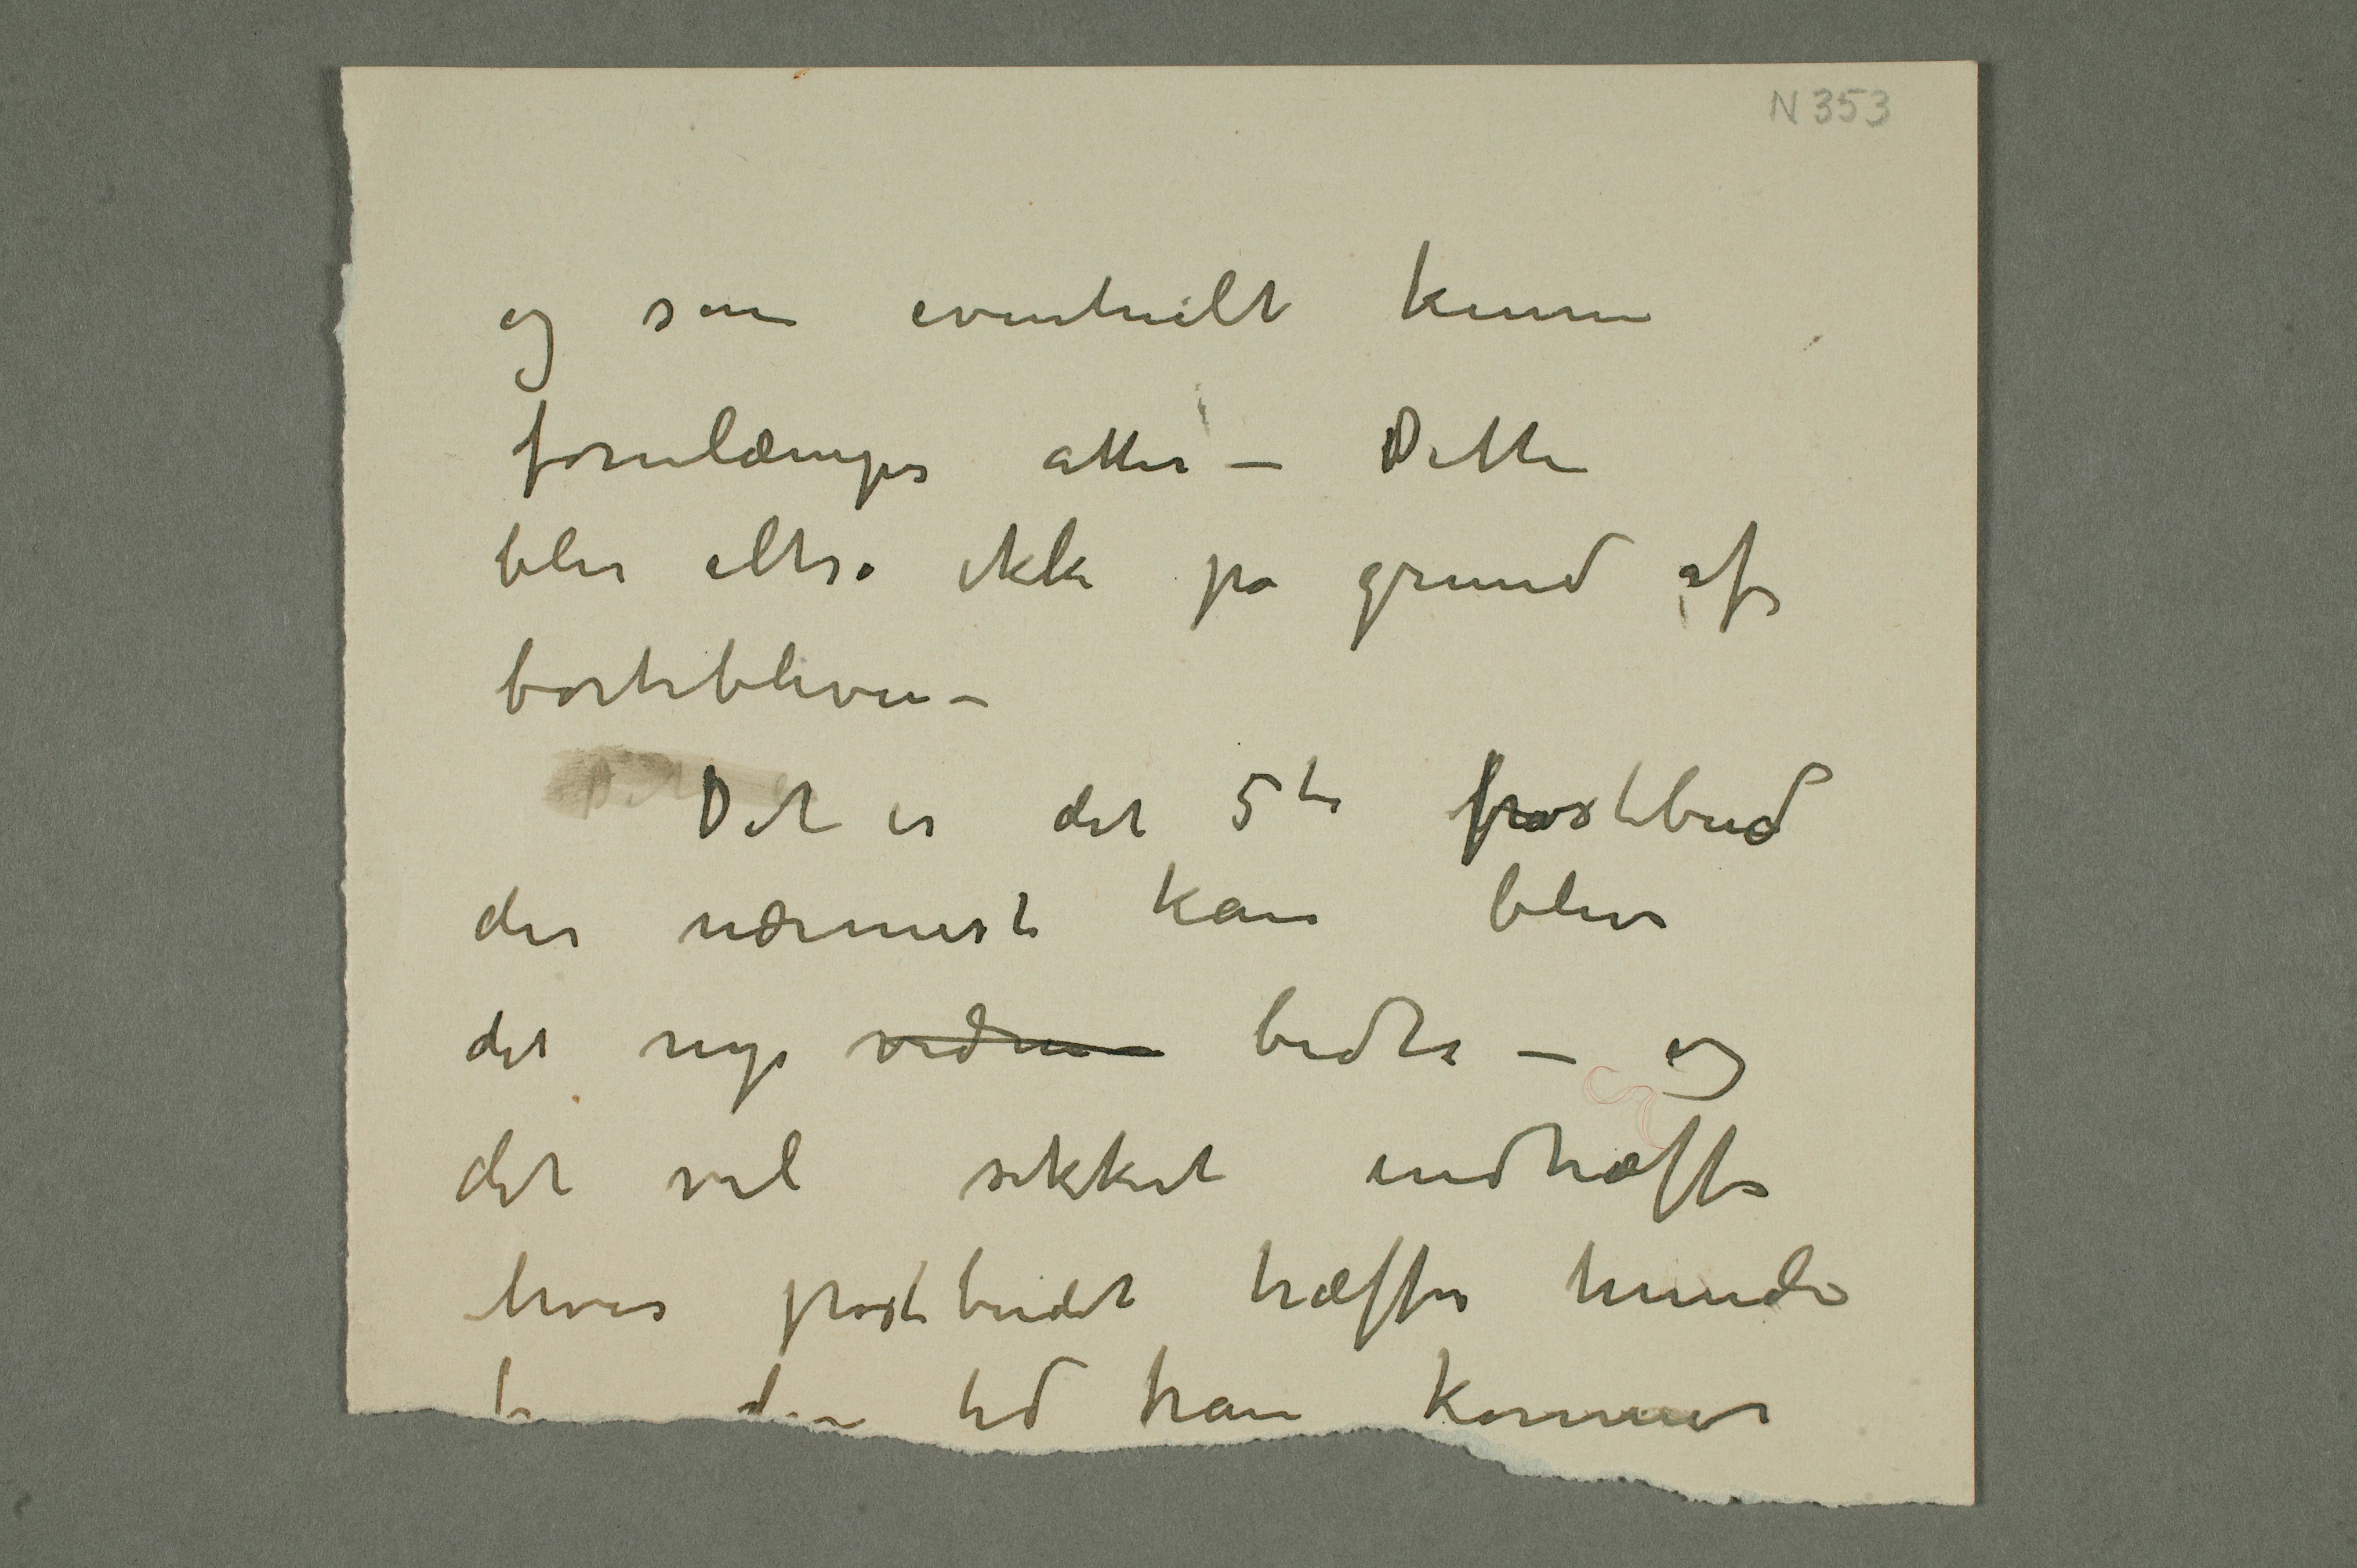 N 353
og som eventuelt kunne
fornlæmpes atter – Dette
blir altså ikke på grund af
bortebliven –
Det er det 5te postbud
der nærmest kan blive
det nye bedste – og
det vil sikkert indtræffe
hvis postbudet træffer hunde
den tid han kommer